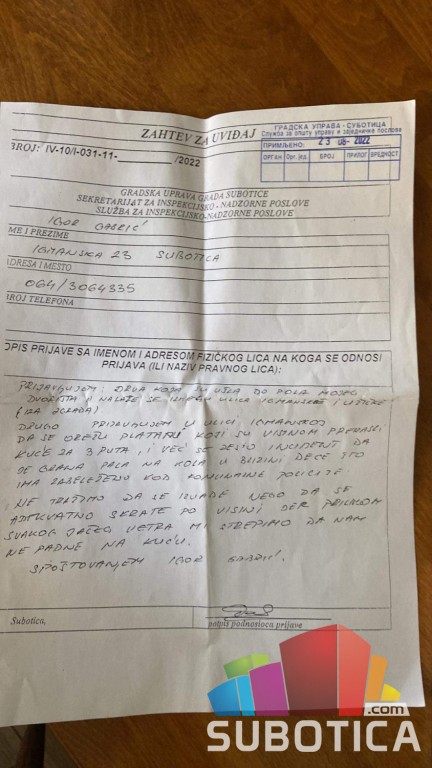 ZAHTEV ZA UVIĐAJ
BROJ: IV-10/I-031-11-________/2022
ГРАДСКА УПРАВА - СУБОТИЦА
Служба за општу управу и заједничке послове
ПРИМЉЕНО: 23 -06- 2022
ОРГАН Орг. јед. БРОЈ ПРИЛОГ ВРЕДНОСТ
GRADSKA UPRAVA GRADA SUBOTICE
SEKRETARIJAT ZA INSPEKCIJSKO - NADZORNE POSLOVE
SLUŽBA ZA INSPEKCIJSKO-NADZORNE POSLOVE
IGOR GABRIĆ
IME I PREZIME
IGMANSKA 23 SUBOTICA
ADRESA I MESTO
064/3064335
BROJ TELEFONA
OPIS PRIJAVE SA IMENOM I ADRESOM FIZIČKOG LICA NA KOGA SE ODNOSI
PRIJAVA (ILI NAZIV PRAVNOG LICA):
PRIJAVLJUJEM: DRVA KOJA SU UŠLA DO POLA MOJEG
DVORIŠTA I NALAZE SE IZMEĐU ULICA IGMANSKE I UŠĆKE
(IZA ZGRADA)
DRUGO PRIJAVLJUJEM U ULICI IGMANSKOJ
DA SE OREŽU PLATANI KOJI SU VISINOM PREMAŠILI
KUĆE ZA 3 PUTA, I VEĆ SE DESIO INCIDENT DA
JE GRANA PALA NA KOLA U BLIZINI DECE ŠTO
IMA ZABELEŽENO KOD KOMUNALNE POLICIJE
NE TRAŽIMO DA SE IZVADE NEGO DA SE
ADEKVATNO SKRATE PO VISINI JER PRILIKOM
SVAKOG JAČEG VETRA MI STREPIMO DA NAM
NE PADNE NA KUĆU.
SPOŠTOVANJEM IGOR GABRIĆ.
Subotica,
potpis podnosioca prijave
.com
SUBOTICA